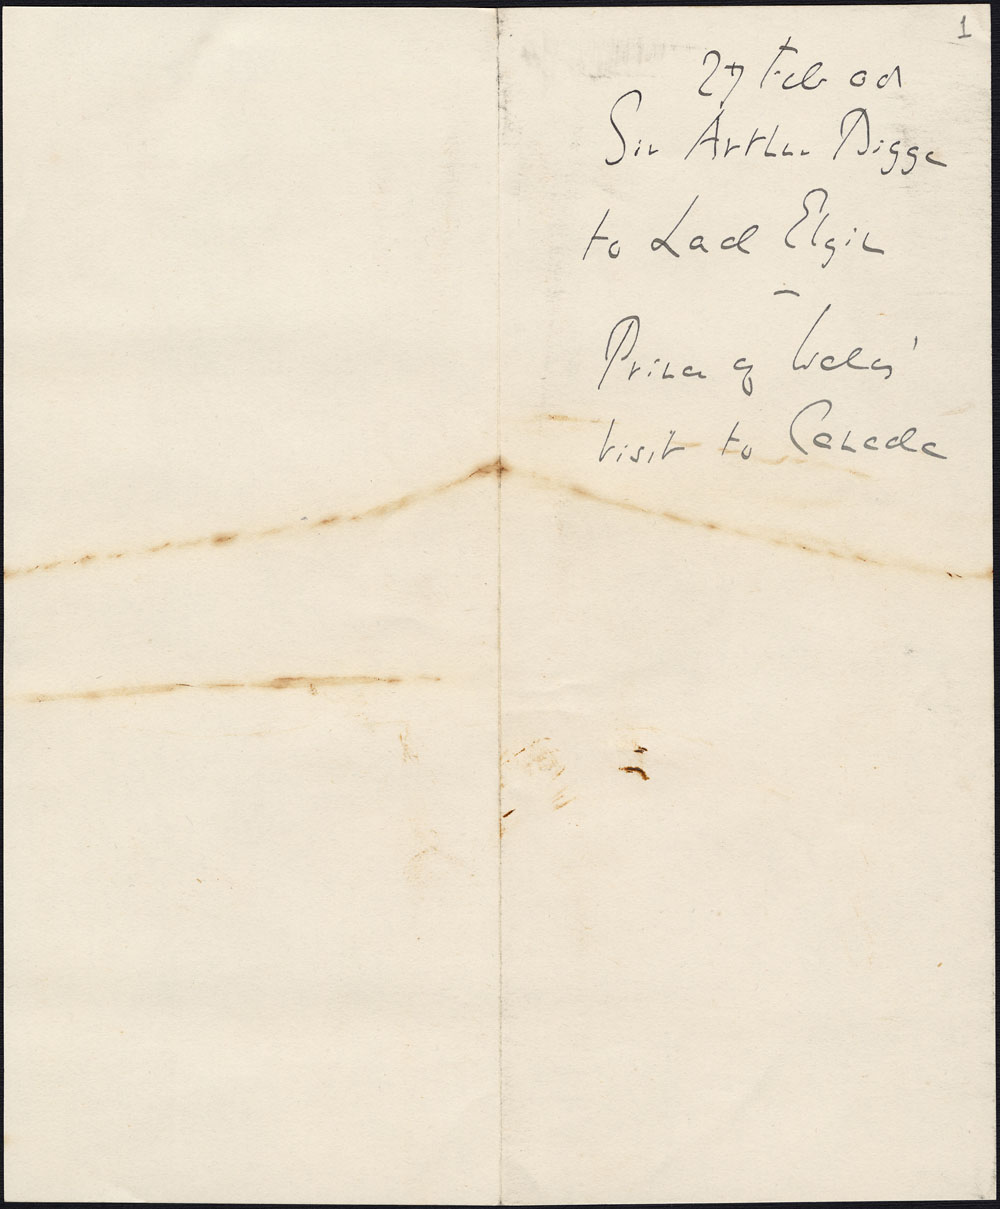 1
27 Feb 08
Sir Arthur Bigge
to Lord Elgin
–
Prince of Wales'
visit to Canada